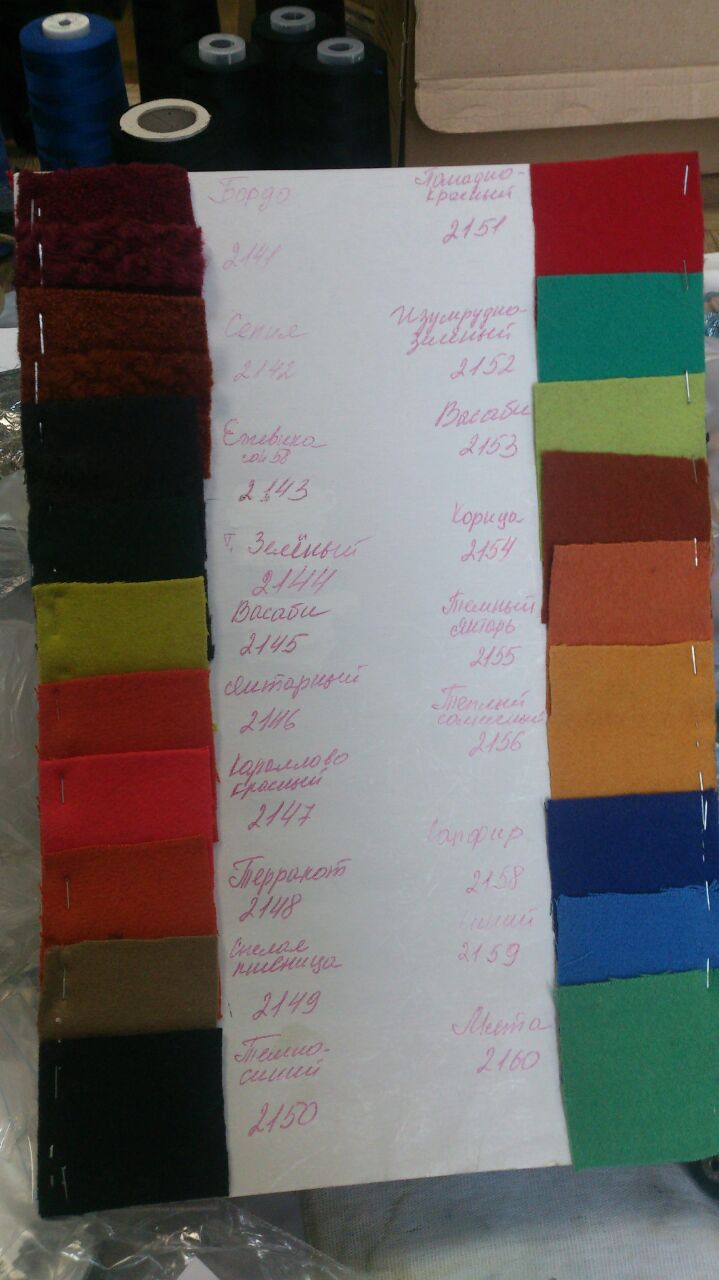 Бордо
2141
Сепия
2142
Ежевика
2143
т. Зелёный
2144
Васаби
2145
Янтарный
2146
Караллово
красный
2147
Терракот
2148
Спелая
пшеница
2149
Темно-
синий
2150
Помадно-
красный
2151
Изумрудно-
зиленый
2152
Васаби
2153
Корида
2154
Темный
Янтарь
2155
Теплый
2156
Сапфир
2158
синий
2159
Мята
2160